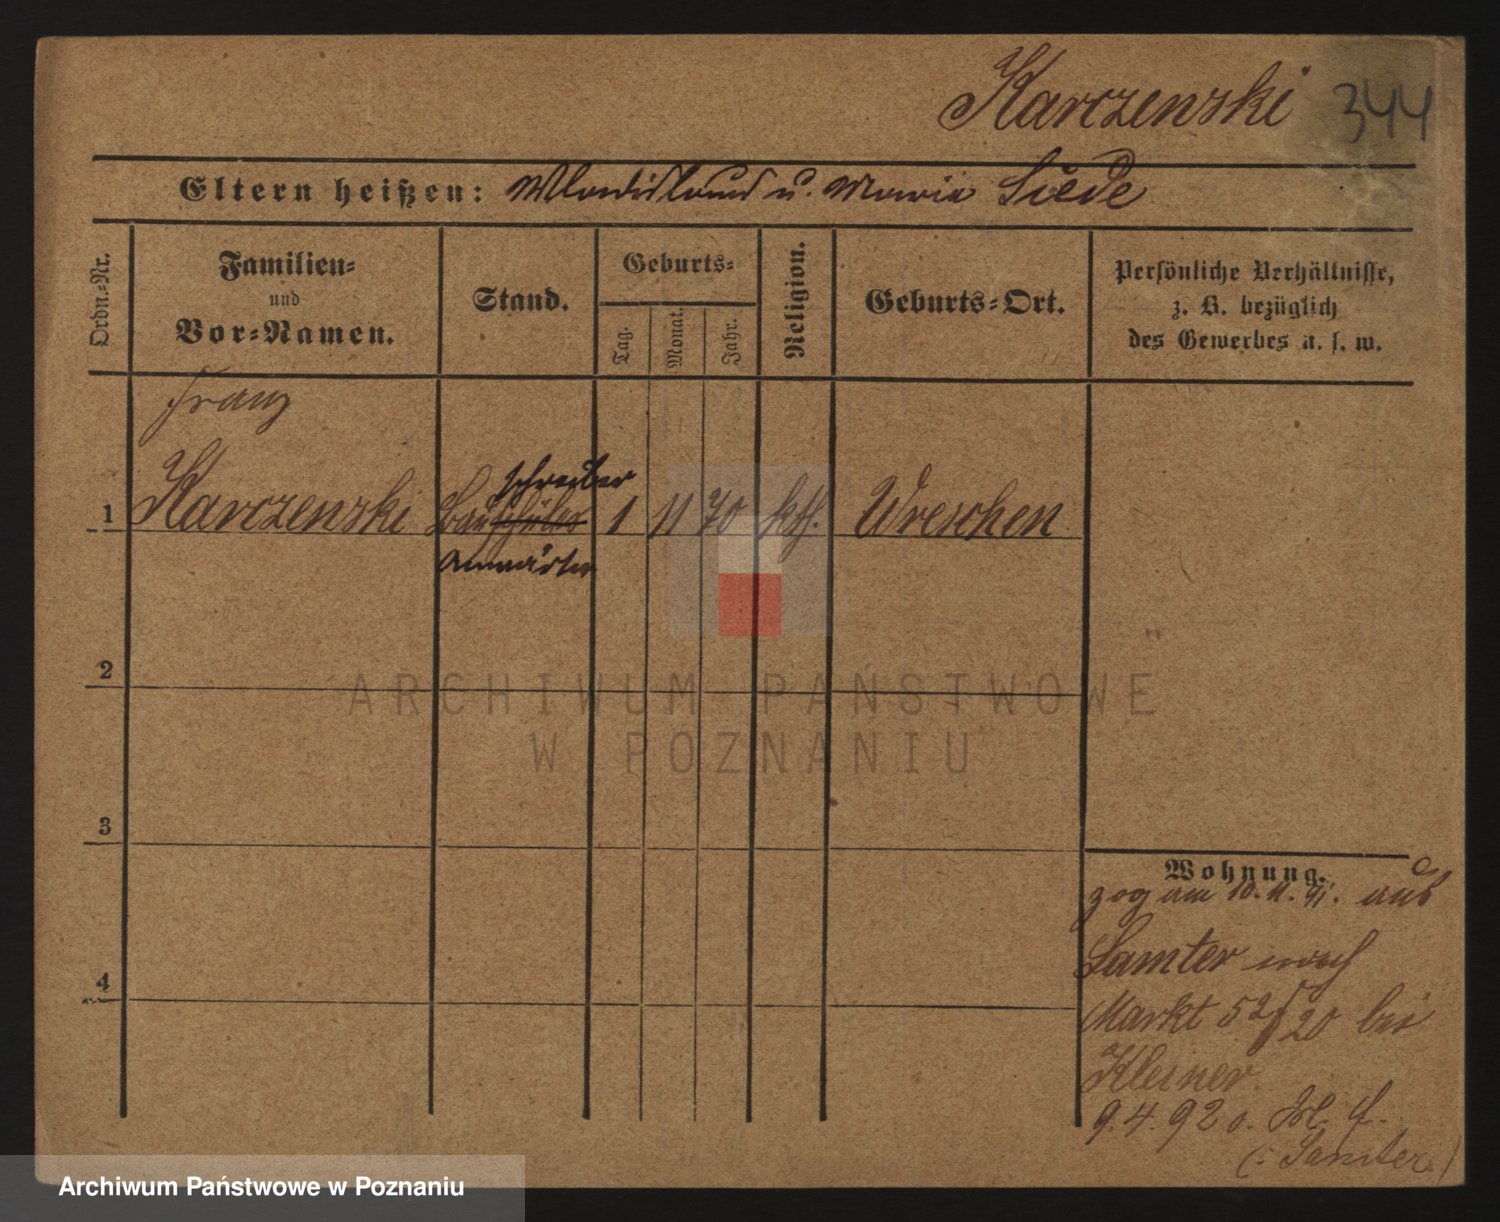 Karczenski 344
Eltern heißen: Wladislaus u. Maria Siede
Ordn.-Nr.
Familien-
und
Vor-Namen.
Stand.
Geburts-
Tag.
Monat.
Jahr.
Religion.
Geburts-Ort.
Persönliche Verhältnisse,
z. B. bezüglich
des Gewerbes u. s. w.
Franz
schreiber
1 Karczenski Bauschüler 1 11 70 kth. Wreschen
Anwärter
2
3
4
Wohnung.
zog am 10. 11. 91. aus
Samter nach
Markt 52/20 bei
Kleiner.
9. 4. 92
(: Samter.)
ARCHIWUM PAŃSTWOWE
W POZNANIU
Archiwum Państwowe w Poznaniu